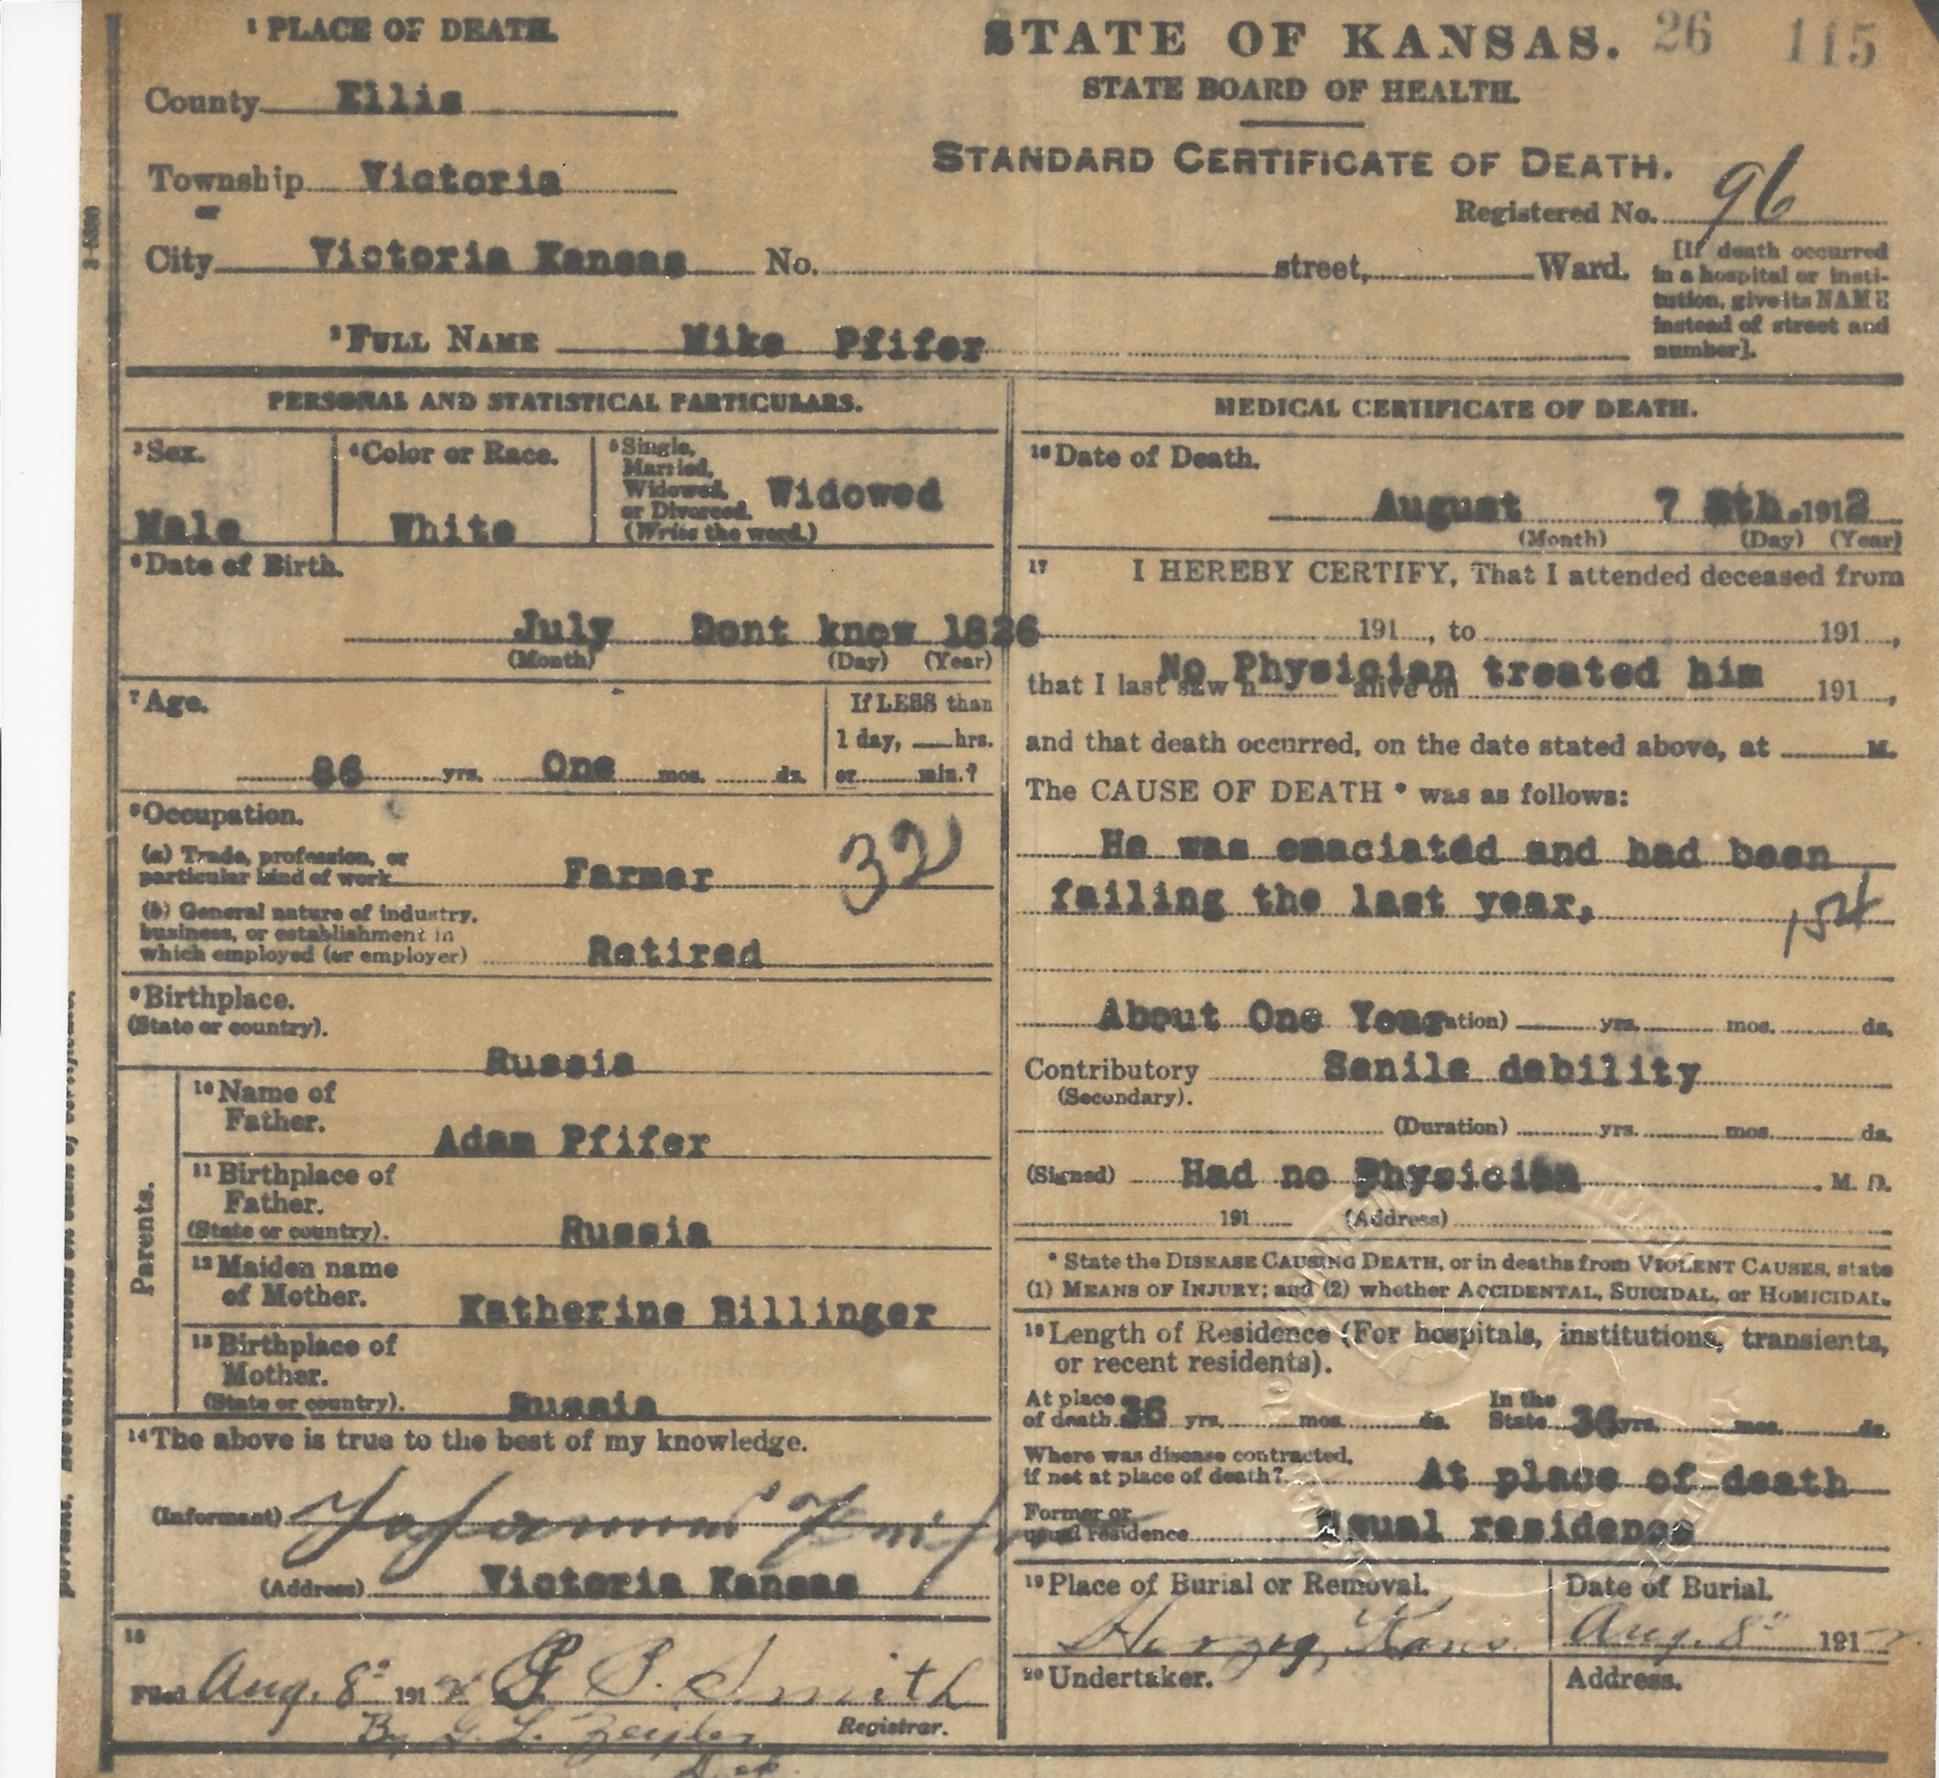 ¹ PLACE OF DEATH.
STATE OF KANSAS. 26 115
STATE BOARD OF HEALTH.
County Ellis
STANDARD CERTIFICATE OF DEATH.
Township Victoria
or
Registered No. 96
City Victoria Kansas No. street, Ward.
[If death occurred
in a hospital or insti-
tution, give its NAME
instead of street and
number].
² FULL NAME Mike Pfifer
PERSONAL AND STATISTICAL PARTICULARS.
³ Sex.
Male
⁴ Color or Race.
White
⁵ Single,
Married,
Widowed,
or Divorced.
(Write the word.)
Widowed
⁶ Date of Birth.
July Dont know 1826
(Month) (Day) (Year)
⁷ Age.
86 yrs. One mos. ds.
If LESS than
1 day, hrs.
or min.?
⁸ Occupation.
(a) Trade, profession, or
particular kind of work Farmer
32
(b) General nature of industry,
business, or establishment in
which employed (or employer) Retired
⁹ Birthplace.
(State or country).
Russia
Parents.
¹⁰ Name of
Father.
Adam Pfifer
¹¹ Birthplace of
Father.
(State or country). Russia
¹² Maiden name
of Mother.
Katherine Billinger
¹³ Birthplace of
Mother.
(State or country). Russia
¹⁴ The above is true to the best of my knowledge.
(Informant)
(Address) Victoria Kansas
¹⁵
Filed Aug. 8" 1912 P. S. Smith
Registrar.
By G. L.
MEDICAL CERTIFICATE OF DEATH.
¹⁶ Date of Death.
August 7 th. 1912
(Month) (Day) (Year)
¹⁷ I HEREBY CERTIFY, That I attended deceased from
191 , to 191 ,
that I last saw h alive on 191 ,
No Physician treated him
and that death occurred, on the date stated above, at M.
The CAUSE OF DEATH * was as follows:
He was emaciated and had been
failing the last year,
154
About One Year ation) yrs. mos. ds.
Contributory Senile debility
(Secondary).
(Duration) yrs. mos. ds.
(Signed) Had no Physician , M. D.
191 (Address)
* State the DISEASE CAUSING DEATH, or in deaths from VIOLENT CAUSES, state
(1) MEANS OF INJURY; and (2) whether ACCIDENTAL, SUICIDAL, or HOMICIDAL.
¹⁸ Length of Residence (For hospitals, institutions, transients,
or recent residents).
At place
of death 36 yrs. mos. ds.
In the
State 36 yrs. mos. ds.
Where was disease contracted,
if not at place of death? At place of death
Former or
usual residence Usual residence
¹⁹ Place of Burial or Removal.
Herzog, Kans.
Date of Burial.
Aug. 8" 1912
²⁰ Undertaker.
Address.